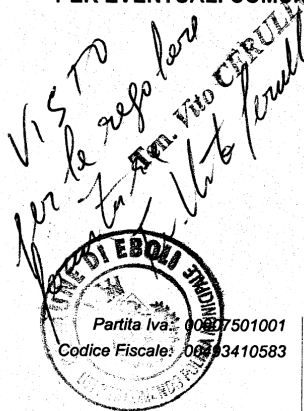 PER EVENTUALI COMU
VISTO
per la regolare
Ten. Vito CERULL
Vito Cerull
DI EBOLI
Partita Iva: 00907501001
Codice Fiscale: 00493410583